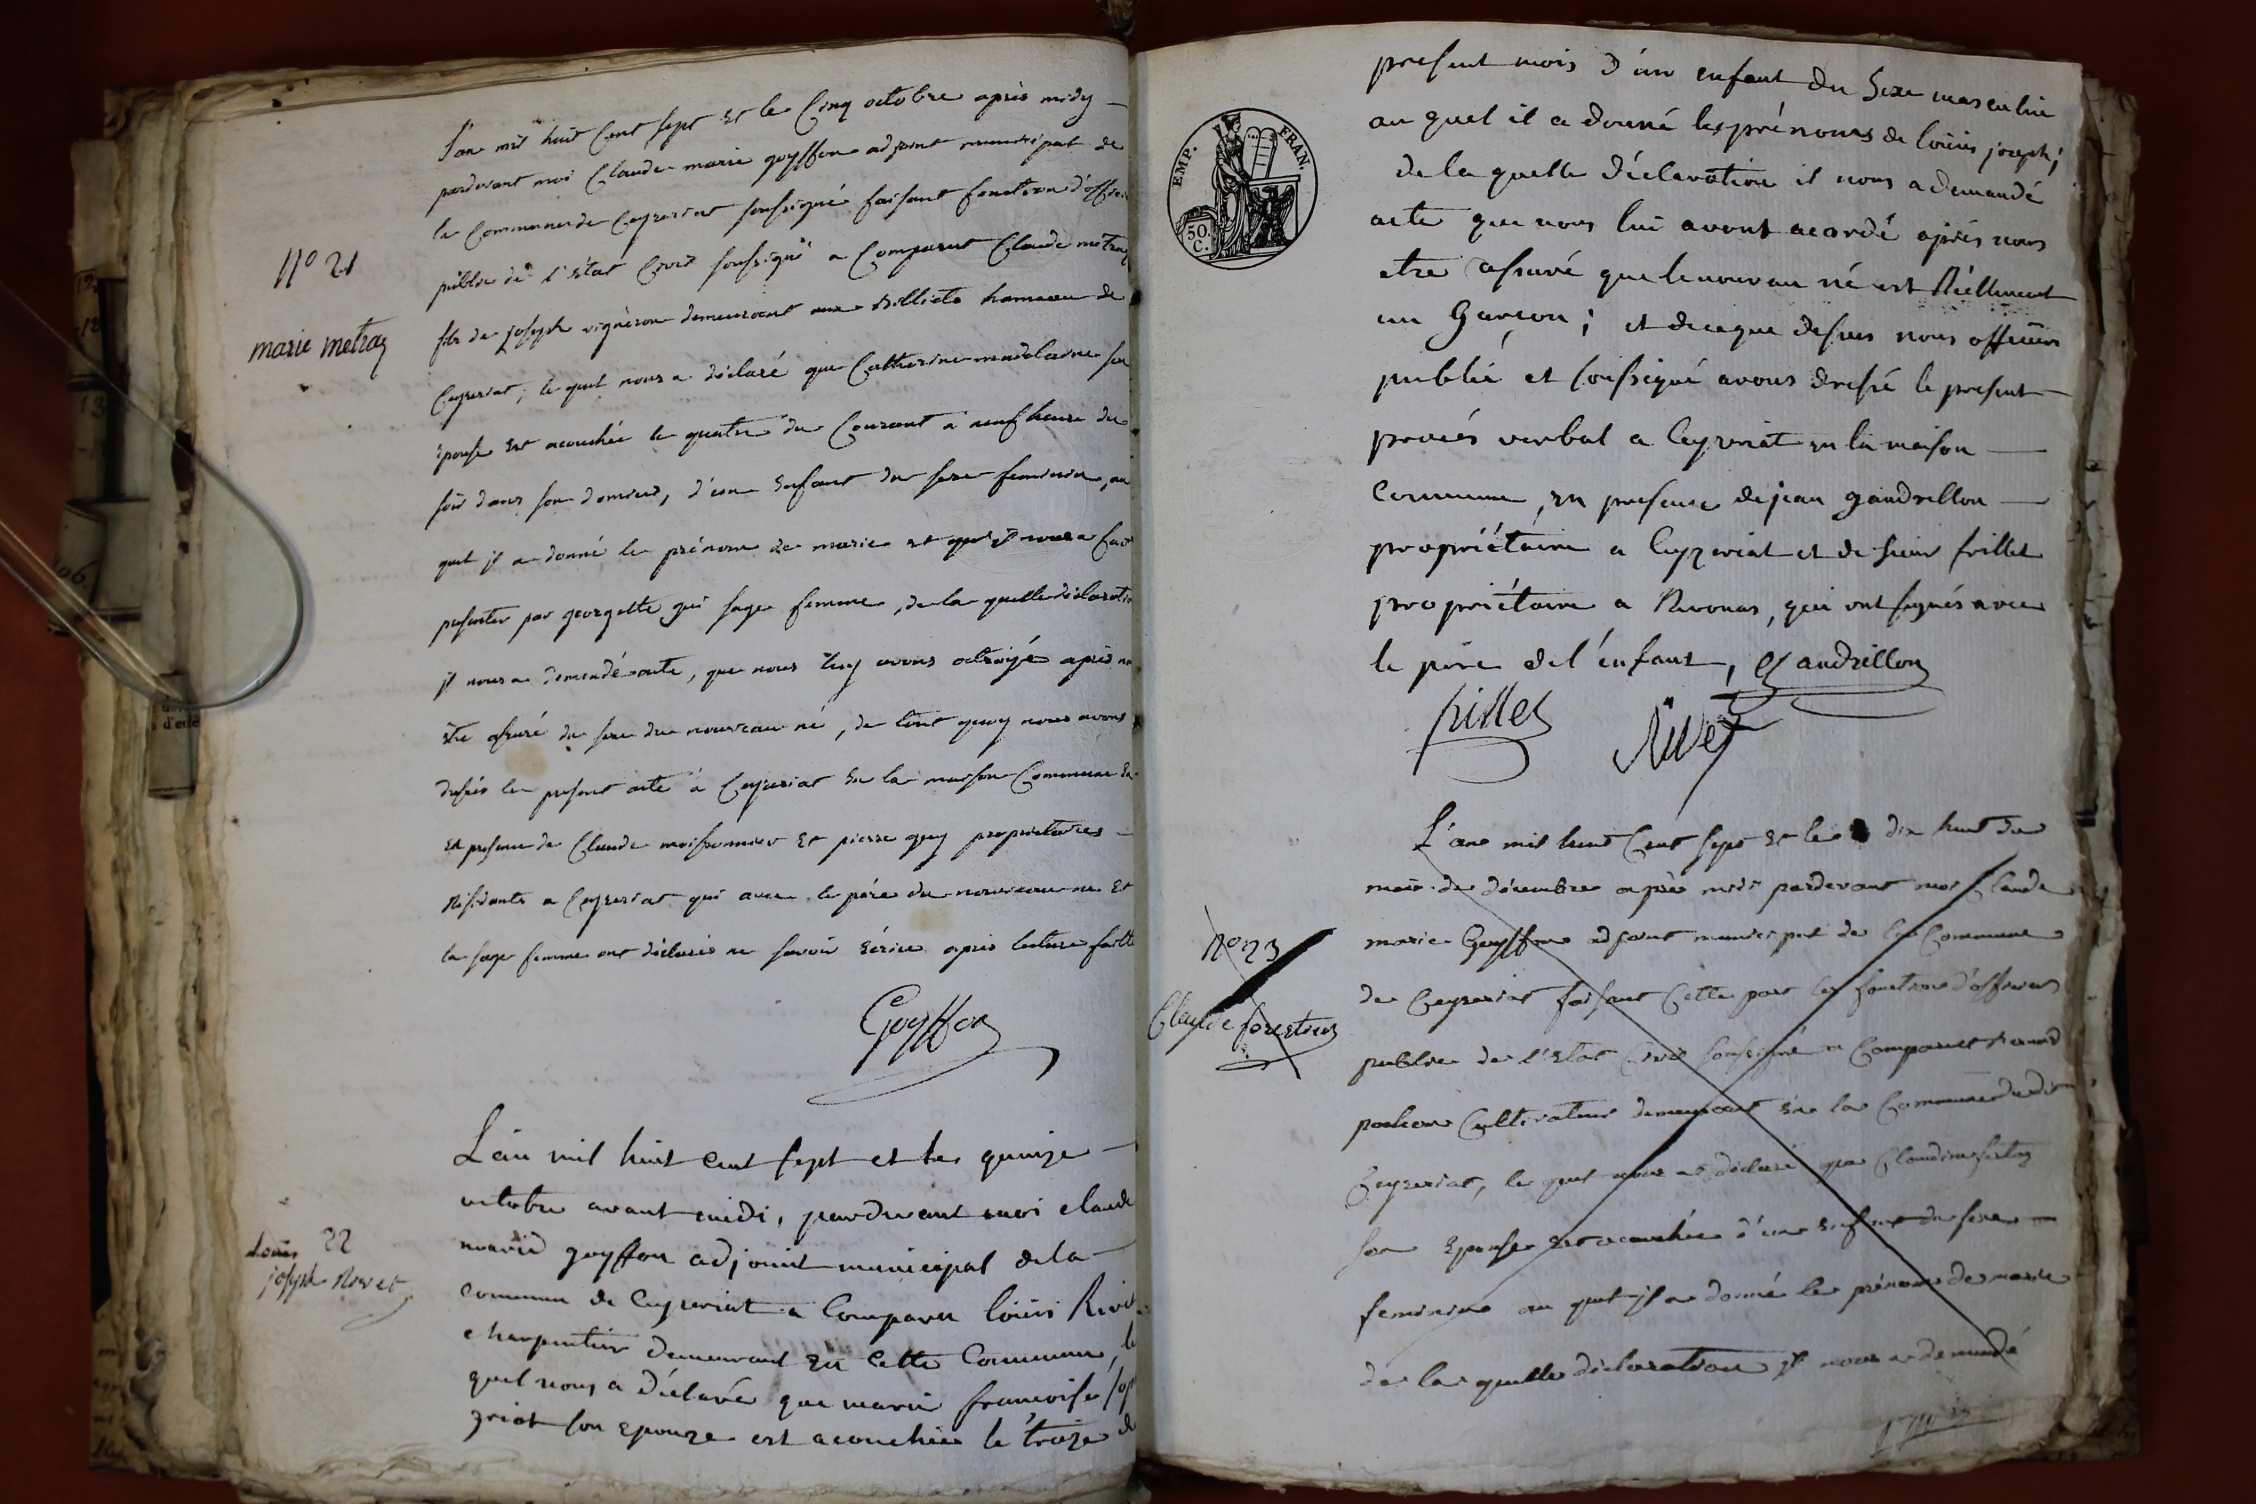 L'an mil huit Cent sept Et le Cinq octobre après midy
pardevant moi Claude marie goyffon adjoint municipal de
la Commune de Ceyzeriat soussigné faisant fonction d'officier
public de l'Etat Civil soussigné a Comparut Claude metraz
fils de joseph vigneron demeurant aux Billiets hameau de
N° 21
marie metraz
Ceyzeriat, le quel nous a déclaré que Catherine madelaine sa
Epouse Est acouchée le quatre du Courant a neuf heure du
soir dans son domicil, d'un Enfant du sexe feminin, au
quel jl a donné le prénom de marie et qu'jl nous a fait
presenter par georgette guy sage femme, de la quelle déclaration
jl nous a demandé acte, que nous luy avons octroyé après nous
Etre assuré du sexe du nouveau né, de tout quoy nous avons
dressés le present acte à Ceyzeriat En la maison Commune
En presence de Claude moissonnier Et pierre guy proprietaires
Residants a Ceyzeriat qui avec le père du nouveau né Et
la sage femme ont déclarés ne savoir Ecrire après lecture faitte
Goyffon
L'an mil huit cent sept et le quinze
octobre avant midi, pardevant moi claude
marie goyffon adjoint municipal de la
22
Louis
joseph Rivet
commune de Ceyzeriat a Comparu loüis Rivet
charpentier demeurant en Cette Commune, le
quel nous a déclaré que marie francoise
zeiat son epouze est acouchée le treize du
EMP. FRAN.
50. C.
present mois d'un enfant du Sexe masculin
au quel il a donné les prénoms de loüis joseph;
de la quelle déclaration il nous a demandé
acte que nous lui avons acordé après nous
etre assuré que le nouveau né est Réellement
un Garçon; et de ce que dessus nous officier
public et soussigné avons dressé le present
procés verbal a Ceyzeriat en la maison
Commune, en presence de jean gandrillon
propriétaire a Ceyzeriat et de sieur frillet
propriétaire a Revonas, qui ont signés avec
le père de l'enfant, Gandrillon
frillet
Rivet
L'an mil huit Cent sept Et le dix huit du
mois de décembre après midi pardevant moi Claude
marie Goyffon adjoint municipal de la Commune
N° 23
de Ceyzeriat faisant Cette part les fonctions d'officier
public de l'Etat Civil soussigné a Comparut
Cultivateur demeurant En la Commune dudit
Ceyzeriat, le quel nous a déclaré que Claudine
son Epouse Est acouchée d'un Enfant du sexe
feminin au quel jl a donné le prénom de marie
de la quelle déclaration jl nous a demandé